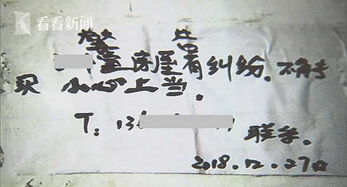 看看新闻
警告
室房屋有纠纷.不能
买 小心上当.
T: 13
联系.
2018.12.27日